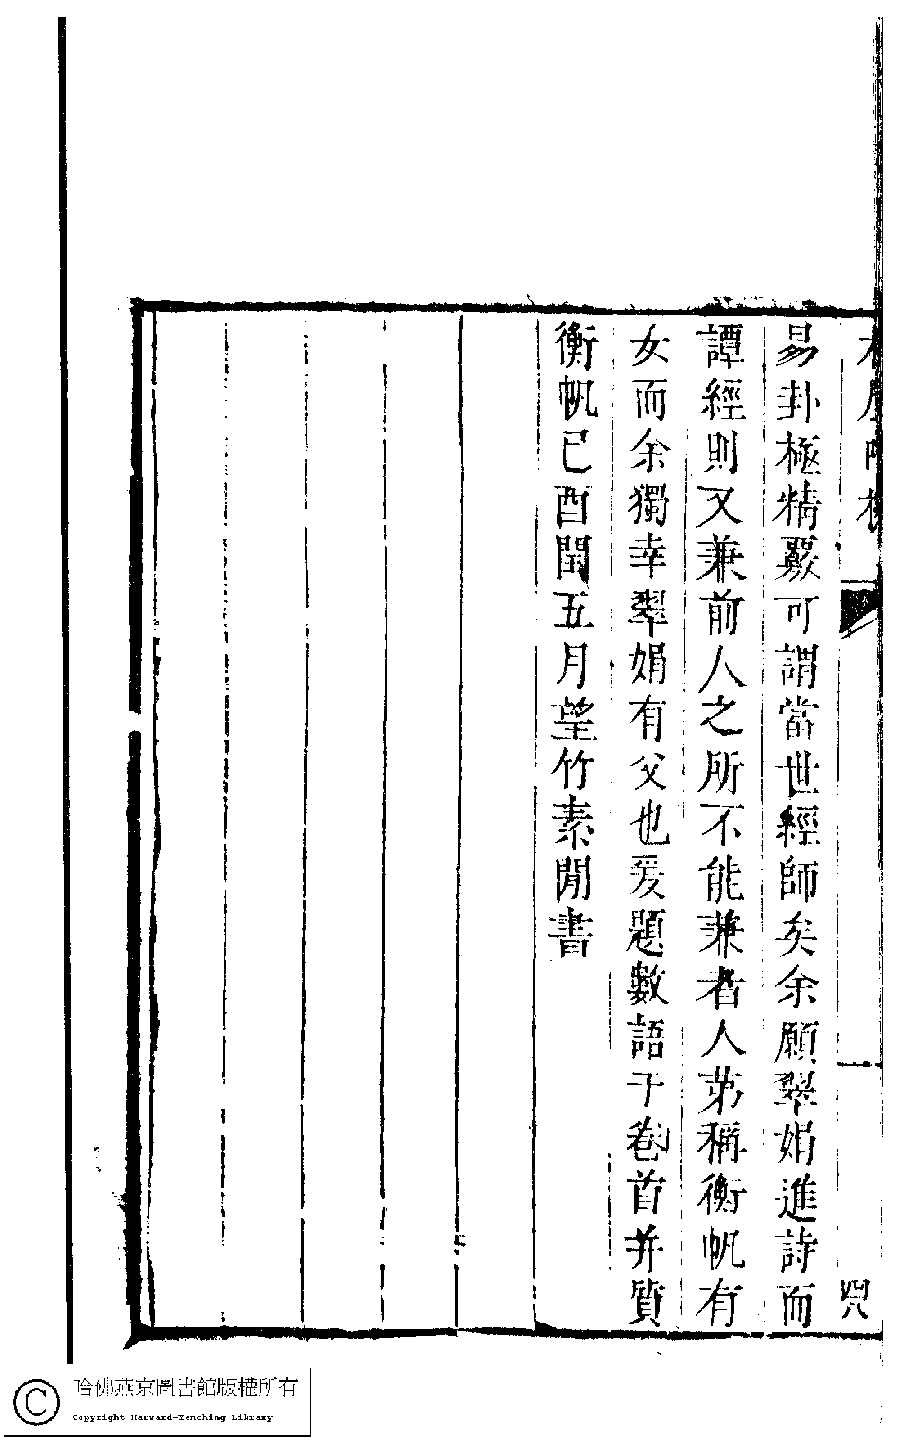 易卦極精覈可謂當世經師矣余願翠娟進詩而
譚經則又兼前人之所不能兼者人苐稱衡帆有
女而余獨幸翠娟有父也爰題數語于卷首并質
衡帆己酉閏五月望竹素閒書
哈佛燕京圖書館版權所有
Copyright Harvard-Yenching Library